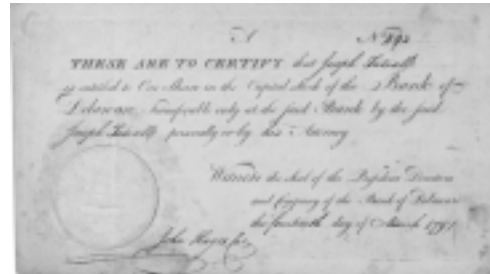 THESE ARE TO CERTIFY that Joseph Tatnall
is entitled to One Share in the Capital Stock of the Bank of
Delaware transferable only at the said Bank by the said
Joseph Tatnall personally or by his Attorney
Witness the Seal of the President Directors
and Company of the Bank of Delaware
the fourteenth day of March 179
John Hayes